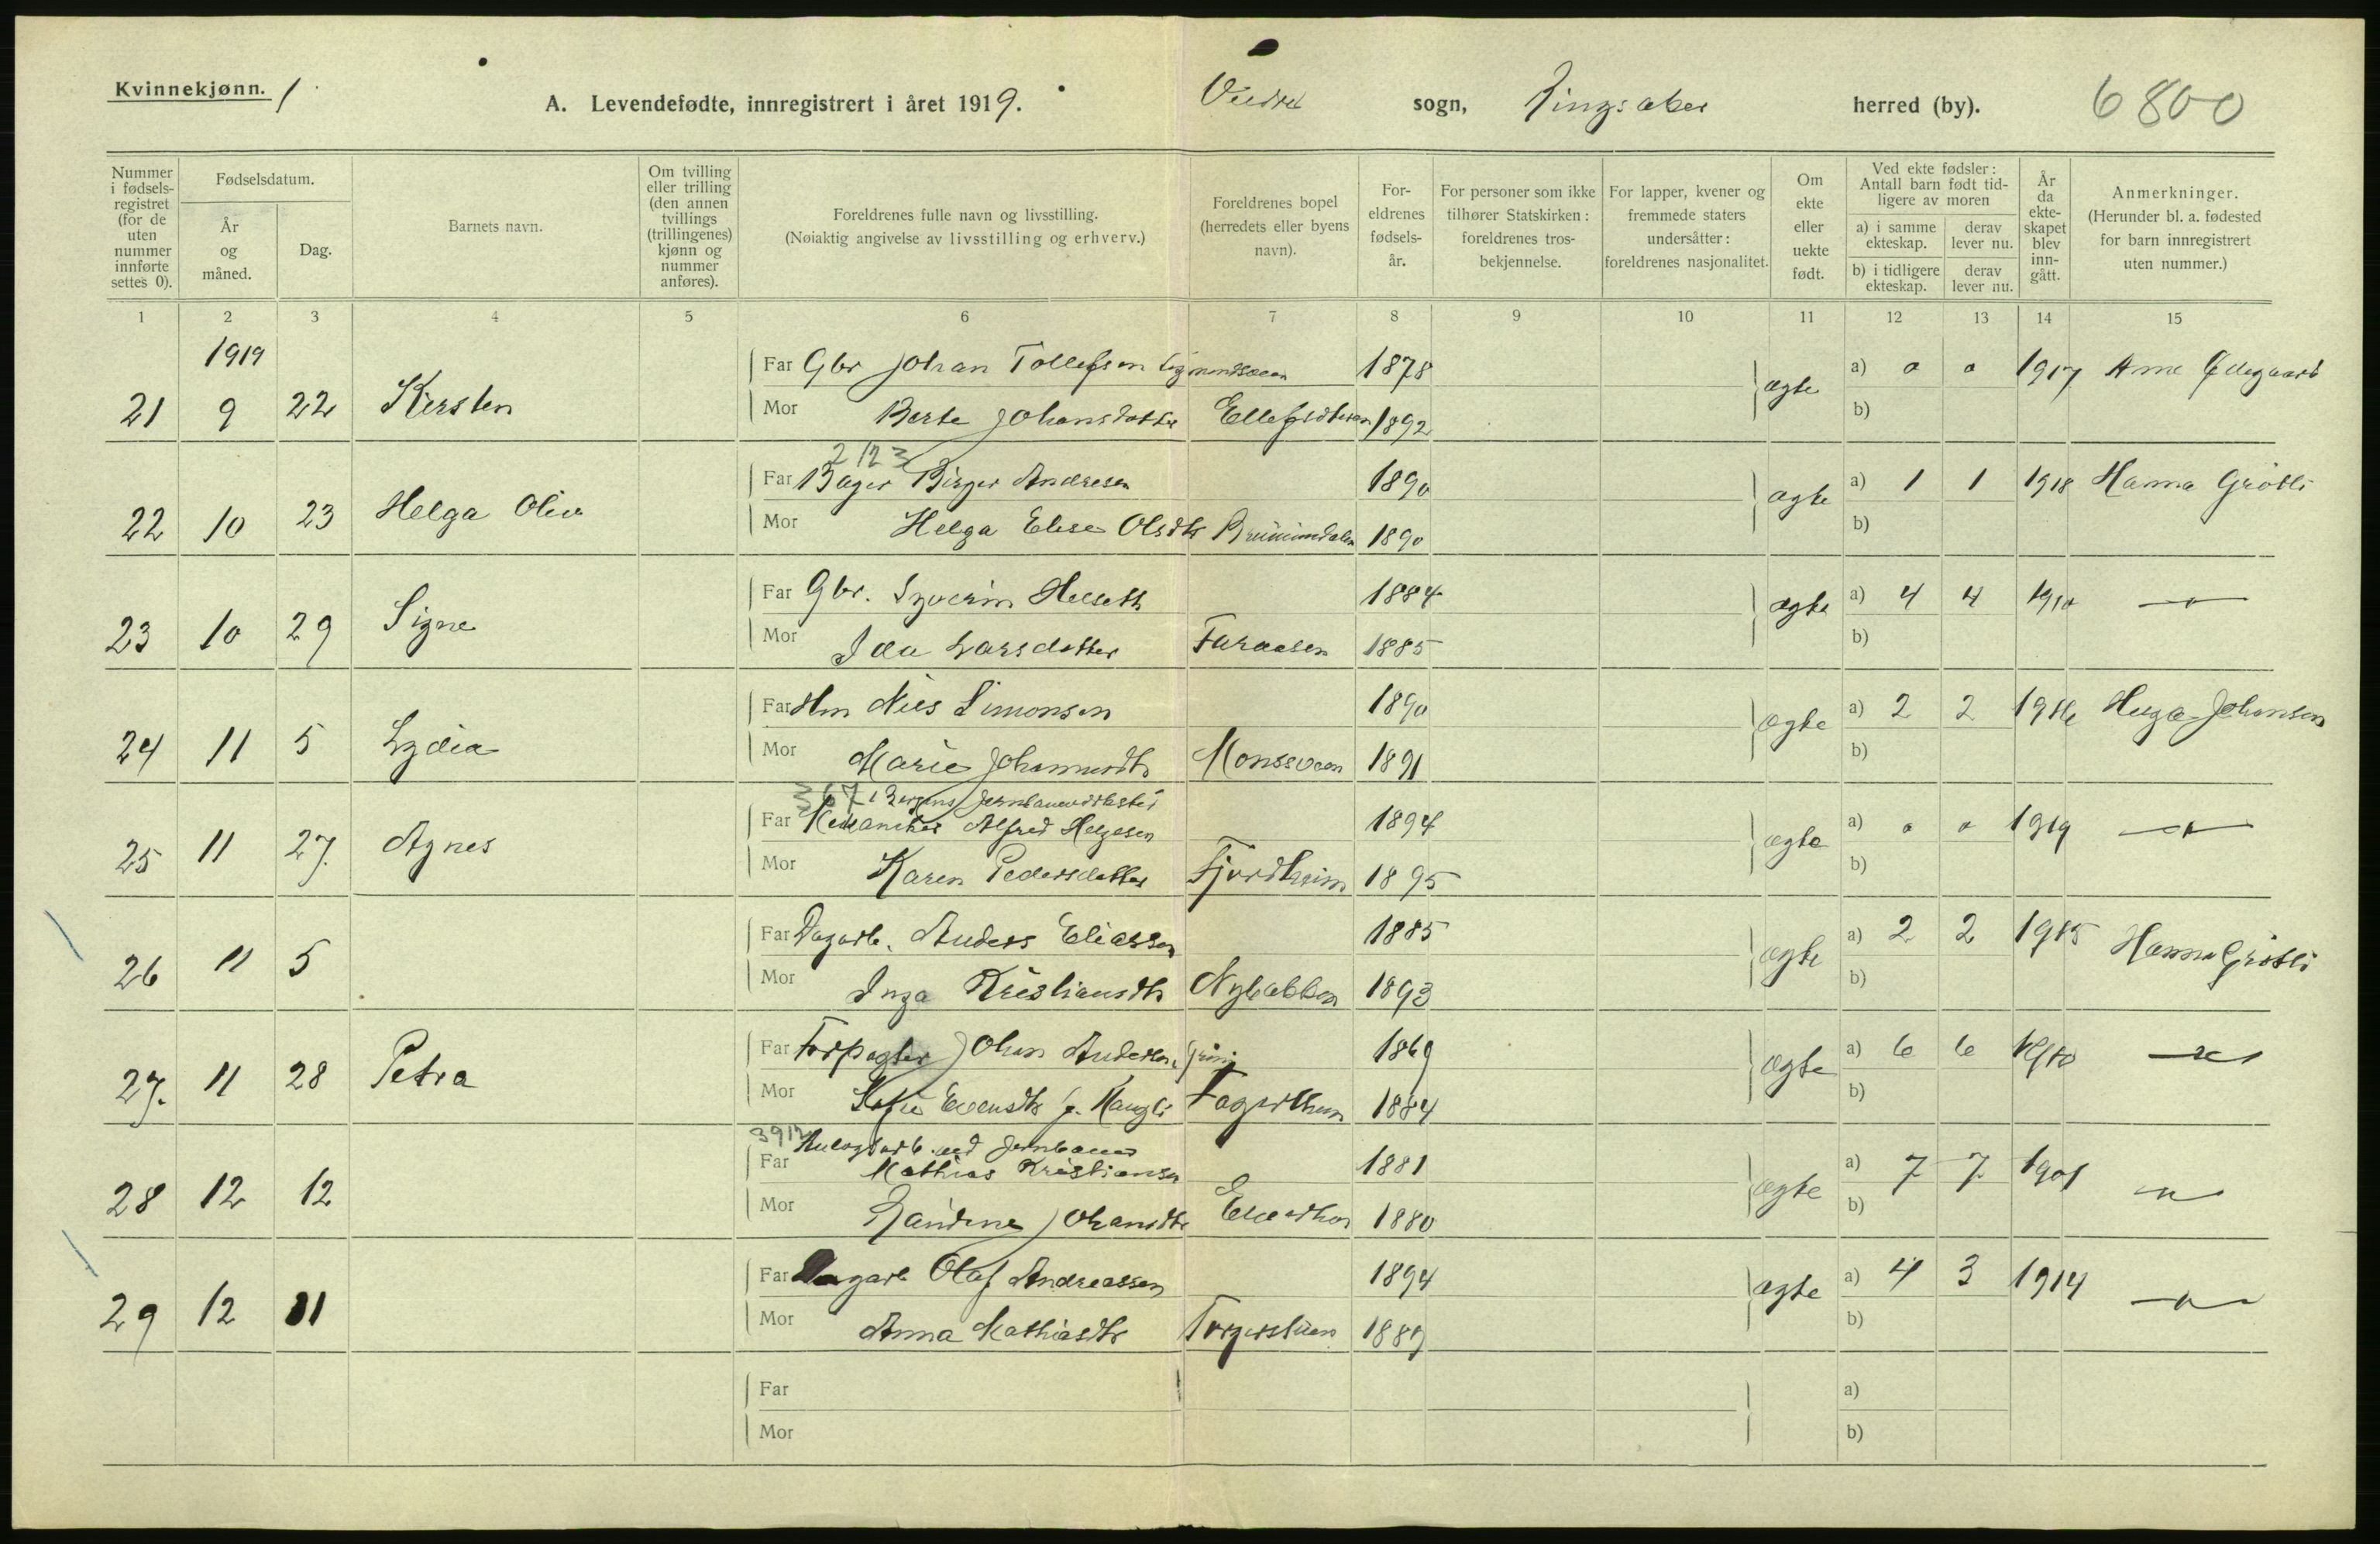 Kvinnekjønn. 1
A. Levendefødte, innregistrert i året 1919. sogn, Ringsaker herred (by). 6800
Nummer i fødsels-registret (for de uten nummer innførte settes 0).
Fødselsdatum.
År og måned.
Dag.
Barnets navn.
Om tvilling eller trilling (den annen tvillings (trillingenes) kjønn og nummer anføres).
Foreldrenes fulle navn og livsstilling.
(Nøiaktig angivelse av livsstilling og erhverv.)
Foreldrenes bopel (herredets eller byens navn).
For-eldrenes fødsels-år.
For personer som ikke tilhører Statskirken: foreldrenes tros-bekjennelse.
For lapper, kvener og fremmede staters undersåtter: foreldrenes nasjonalitet.
Om ekte eller uekte født.
Ved ekte fødsler: Antall barn født tid-ligere av moren
a) i samme ekteskap.
derav lever nu.
b) i tidligere ekteskap.
derav lever nu.
År da ekte-skapet blev inn-gått.
Anmerkninger.
(Herunder bl. a. fødested for barn innregistrert uten nummer.)
1 2 3 4 5 6 7 8 9 10 11 12 13 14 15
1919
Far Gbr Johan Tollefsen 1878 ægte a) 0 0 1917 Anne
21 9 22 Kersten Mor Berte Johansdatter 1892 b)
2123
Far Bager Birger Andresen 1890 ægte a) 1 1 1918 Hanna Grøtli
22 10 23 Helga Oliv Mor Helga Elise Olsdtr Brummundalen 1890 b)
Far Gbr. Syverin Helseth 1884 ægte a) 4 4 1910 — " —
23 10 29 Signe Mor Ida Larsdatter Furaasen 1885 b)
Far Hm Nils Simonsen 1890 ægte a) 2 2 1916 Helga Johansen
24 11 5 Lydia Mor Marie Johannesdtr Monssveen 1891 b)
367 Bergens Jernbaneverksted
Far Mekaniker Alfred Helgesen 1894 ægte a) 0 0 1919 — " —
25 11 27. Agnes Mor Karen Pedersdatter Fjordheim 1895 b)
Far Dagarb. Anders Eliassen 1885 ægte a) 2 2 1915 Hanna Grøtli
26 11 5 Mor Inga Kristiansdtr Nybakken 1893 b)
Far Forpagter Johan Andersen 1869 ægte a) 6 6 1910 — " —
27. 11 28 Petra Mor Sofie Evensdtr 1884 b)
3912 Anlægsarb. ved Jernbanen
Far Mathias Kristiansen 1881 ægte a) 7 7 1901 — " —
28 12 12 Mor Randine Johansdtr 1880 b)
Far Dagarb Olaf Andreassen 1894 ægte a) 4 3 1914 — " —
29 12 11 Mor Anna Mathiasdtr Torgerstuen 1889 b)
Far a)
Mor b)